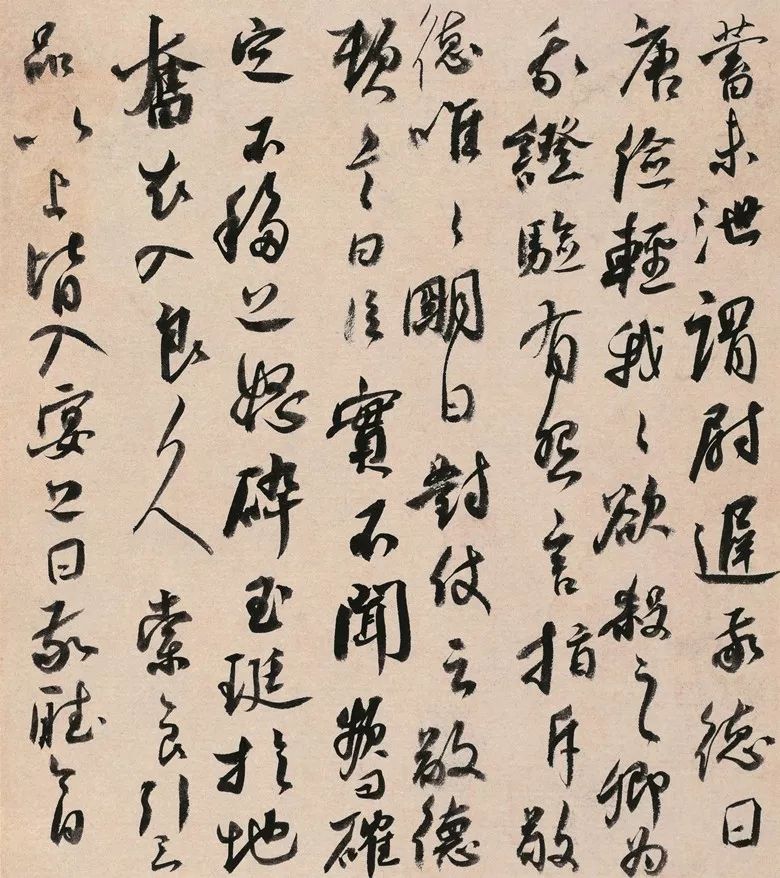 蓄未泄謂尉遲敬德曰
唐儉輕我々欲殺之卿為
我證驗有怨言指斥敬
德唯々明日對仗云敬德
頓首曰臣實不聞頻問確
定不移上怒碎玉珽於地
奮衣入良久索食引三
品以上皆入宴上曰敬德今日